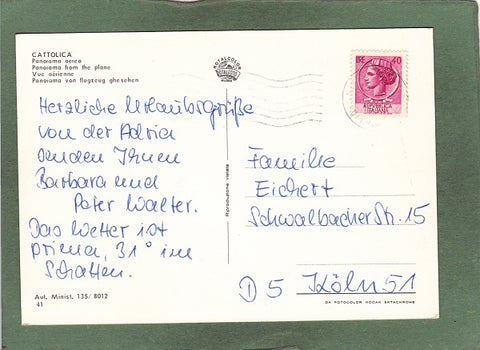 CATTOLICA
Panorama aereo
Panorama from the plane
Vue aérienne
Panorama von flugzeug ghesehen
ROTALCOLOR
LIRE 40
REPUBBLICA
ITALIANA
Herzliche Urlaubsgrüße
von der Adria
senden Ihnen
Barbara und
Peter Walter.
Das Wetter ist
prima, 31° im
Schatten.
Riproduzione Vietata
Familie
Eichert
Schwalbacher Str. 15
D 5 Köln 51
Aut. Minist. 135/8012
41
DA FOTOCOLOR KODAK EKTACHROME